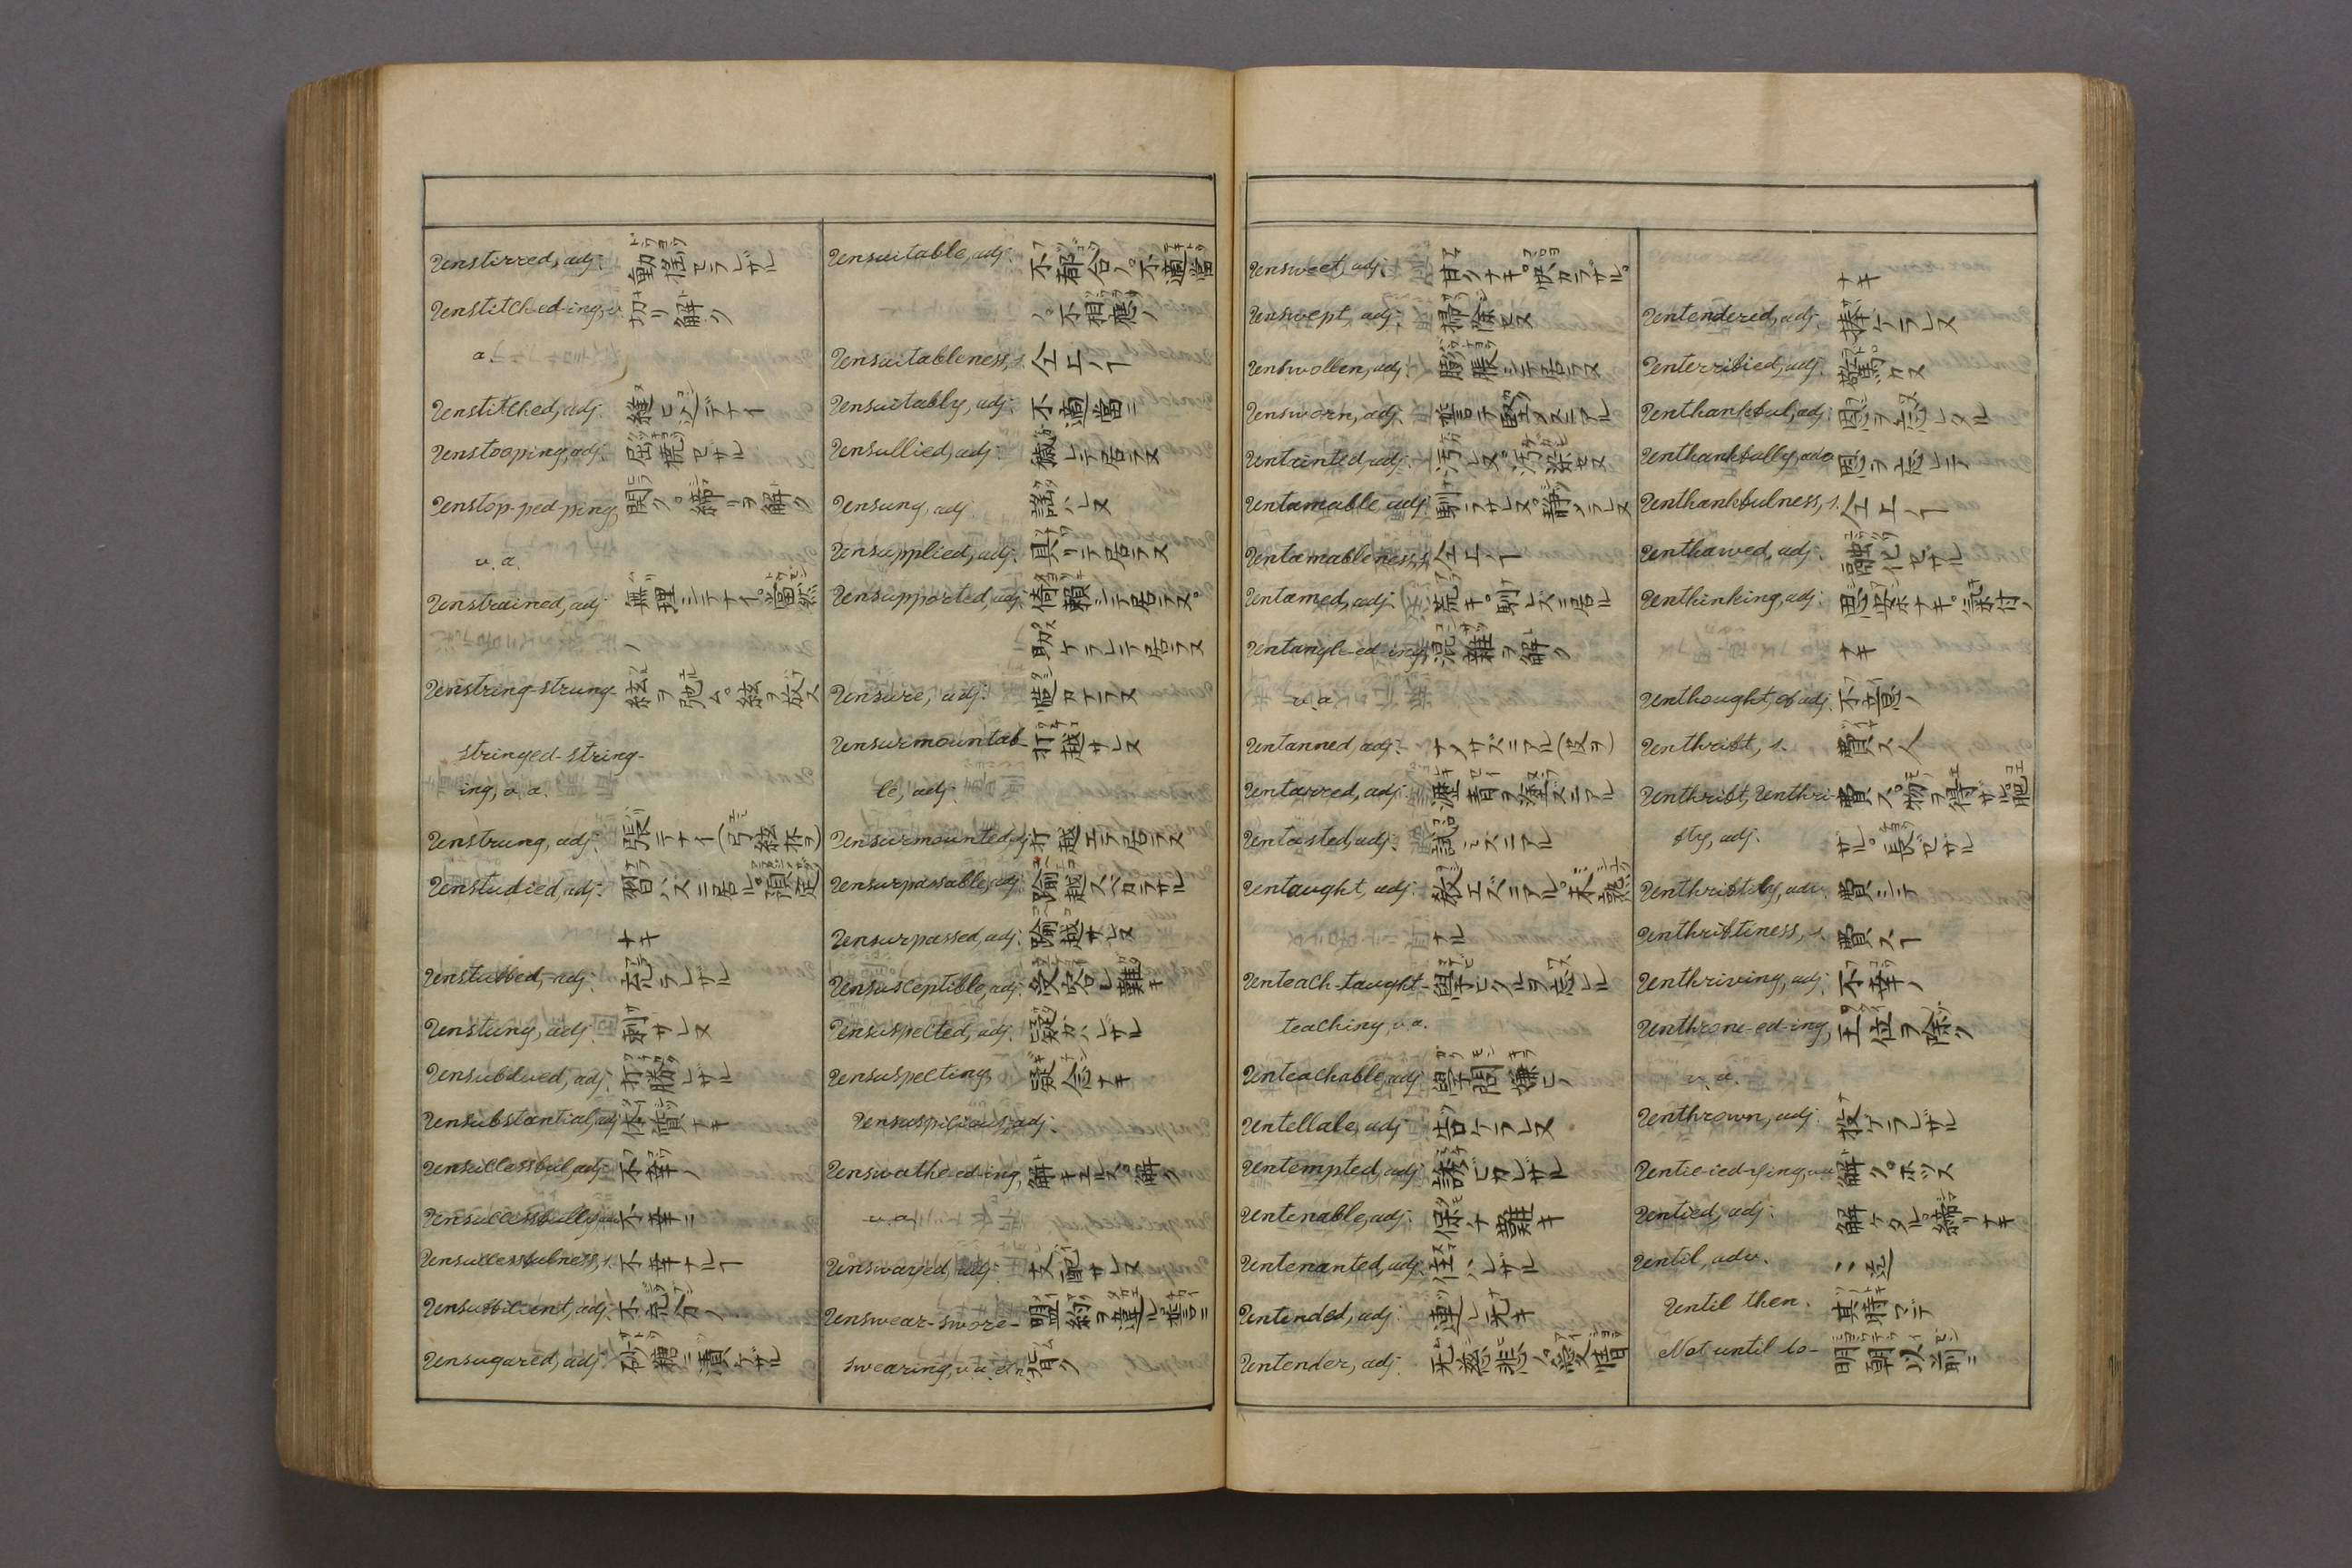 Unstirred, adj. 動揺セラレザル
Unstitched-ing, v. 切リ解ク
a.
Unstitched, adj. 縫ヒ込デナイ
Unstooping, adj. 屈撓セザル
Unstop-ped-ping, 開ク。締リヲ解ク
v. a.
Unstrained, adj. 無理シテナイ。當然
ノ
Unstring-strung- 絃ヲ弛ム。絃ヲ放ス
stringed-string-
ing, v. a.
Unstrung, adj. 張テナイ(弓絃抔ヲ)
Unstudied, adj. 習ハズニ居ル。預定
ナキ
Unstuffed, adj. 充ラレザル
Unstung, adj. 刺サレヌ
Unsubdued, adj. 打勝レザル
Unsubstantial, adj. 体質ナキ
Unsuccessful, adj. 不幸ノ
Unsuccessfully, 不幸ニ
Unsuccessfulness, s. 不幸ナルヿ
Unsufficient, adj. 不充分ノ
Unsugared, adj. 砂糖ニ漬ケザル
Unsuitable, adj. 不都合ノ。不適當
ノ。不相應ノ
Unsuitableness, s. 仝上ノヿ
Unsuitably, adj. 不適當ニ
Unsullied, adj. 穢レテ居ラヌ
Unsung, adj. 謡ハレヌ
Unsupplied, adj. 具リテ居ラヌ
Unsupported, adj. 倚頼シテ居ラヌ。
助ケラレテ居ラヌ
Unsure, adj. 慥カナラヌ
Unsurmountab- 打越サレヌ
le, adj.
Unsurmounted, adj. 打越エテ居ラヌ
Unsurpassable, adj. 踰越スベカラザル
Unsurpassed, adj. 踰越サレヌ
Unsusceptible, adj. 受容レ難キ
Unsuspected, adj. 疑ガハレザル
Unsuspecting, 疑念ナキ
Unsuspicious adj.
Unswathe-ed-ing, 解キエルス。解ク
v. a.
Unswayed, adj. 支配サレヌ
Unswear-swore- 盟約ヲ違ル。誓言ニ
swearing, v. a. et n. 背ク
Unsweet, adj. 甘クナキ。快カラザル。
Unswept, adj. 掃除セヌ
Unswollen, adj. 膨脹シテ居ラヌ
Unsworn, adj. 誓言ヲ立ヌニアル
Untainted, adj. 汚レヌ。汚染セヌ
Untamable adj. 馴ラサレヌ。静メラレヌ
Untamableness, s. 仝上ノヿ
Untamed, adj. 荒キ。馴レズニ居ル
Untangle-ed-ing, 混雜ヲ解ク
v. a.
Untanned, adj. ナメサズニアル(皮ヲ)
Untarred, adj. 瀝青ヲ塗ズニアル
Untasted, adj. 試ミズニアル
Untaught, adj. 教エズニアル。未熟
ナル
Unteach-taught- 學ビタルヲ忘レル
teaching, v. a.
Unteachable, adj. 學問嫌ヒノ
Untellale, adj. 告ケラレヌ
Untempted, adj. 誘ヒカレザル
Untenable, adj. 保チ難キ
Untenanted, adj. 住ハレザル
Untended, adj. 連レ无キ
Untender, adj. 无慈悲ノ。愛惜
ナキ
Untendered, adj. 捧ケラレヌ
Unterrified, adj. 驚カヌ
Unthankful, adj. 恩ヲ忘レタル
Unthankfully, adv. 恩ヲ忘レテ
Unthankfulness, s. 仝上ノヿ
Unthawed, adj. 融化セザル
Unthinking, adj. 思案ナキ。氣付ノ
ナキ
Unthought, of adj. 不意ノ
Unthrift, s. 費ス人
Unthrift, Unthri- 費ス。物ヲ得ザル。肥
fty, adj. ザル。長ゼザル
Unthriftily, adv. 費シテ
Unthriftiness, s. 費スヿ
Unthriving, adj. 不幸ノ
Unthrone-ed-ing, 王位ヲ除ク
v. a.
Unthrown, adj. 投ゲラレザル
Untie-ied-ying, v. a. 解ク。ホツス
Untied, adj. 解ケタル。締リナキ
Until, adv. 迄
Until then. 其時マデ
Not until to- 明朝以前ニ